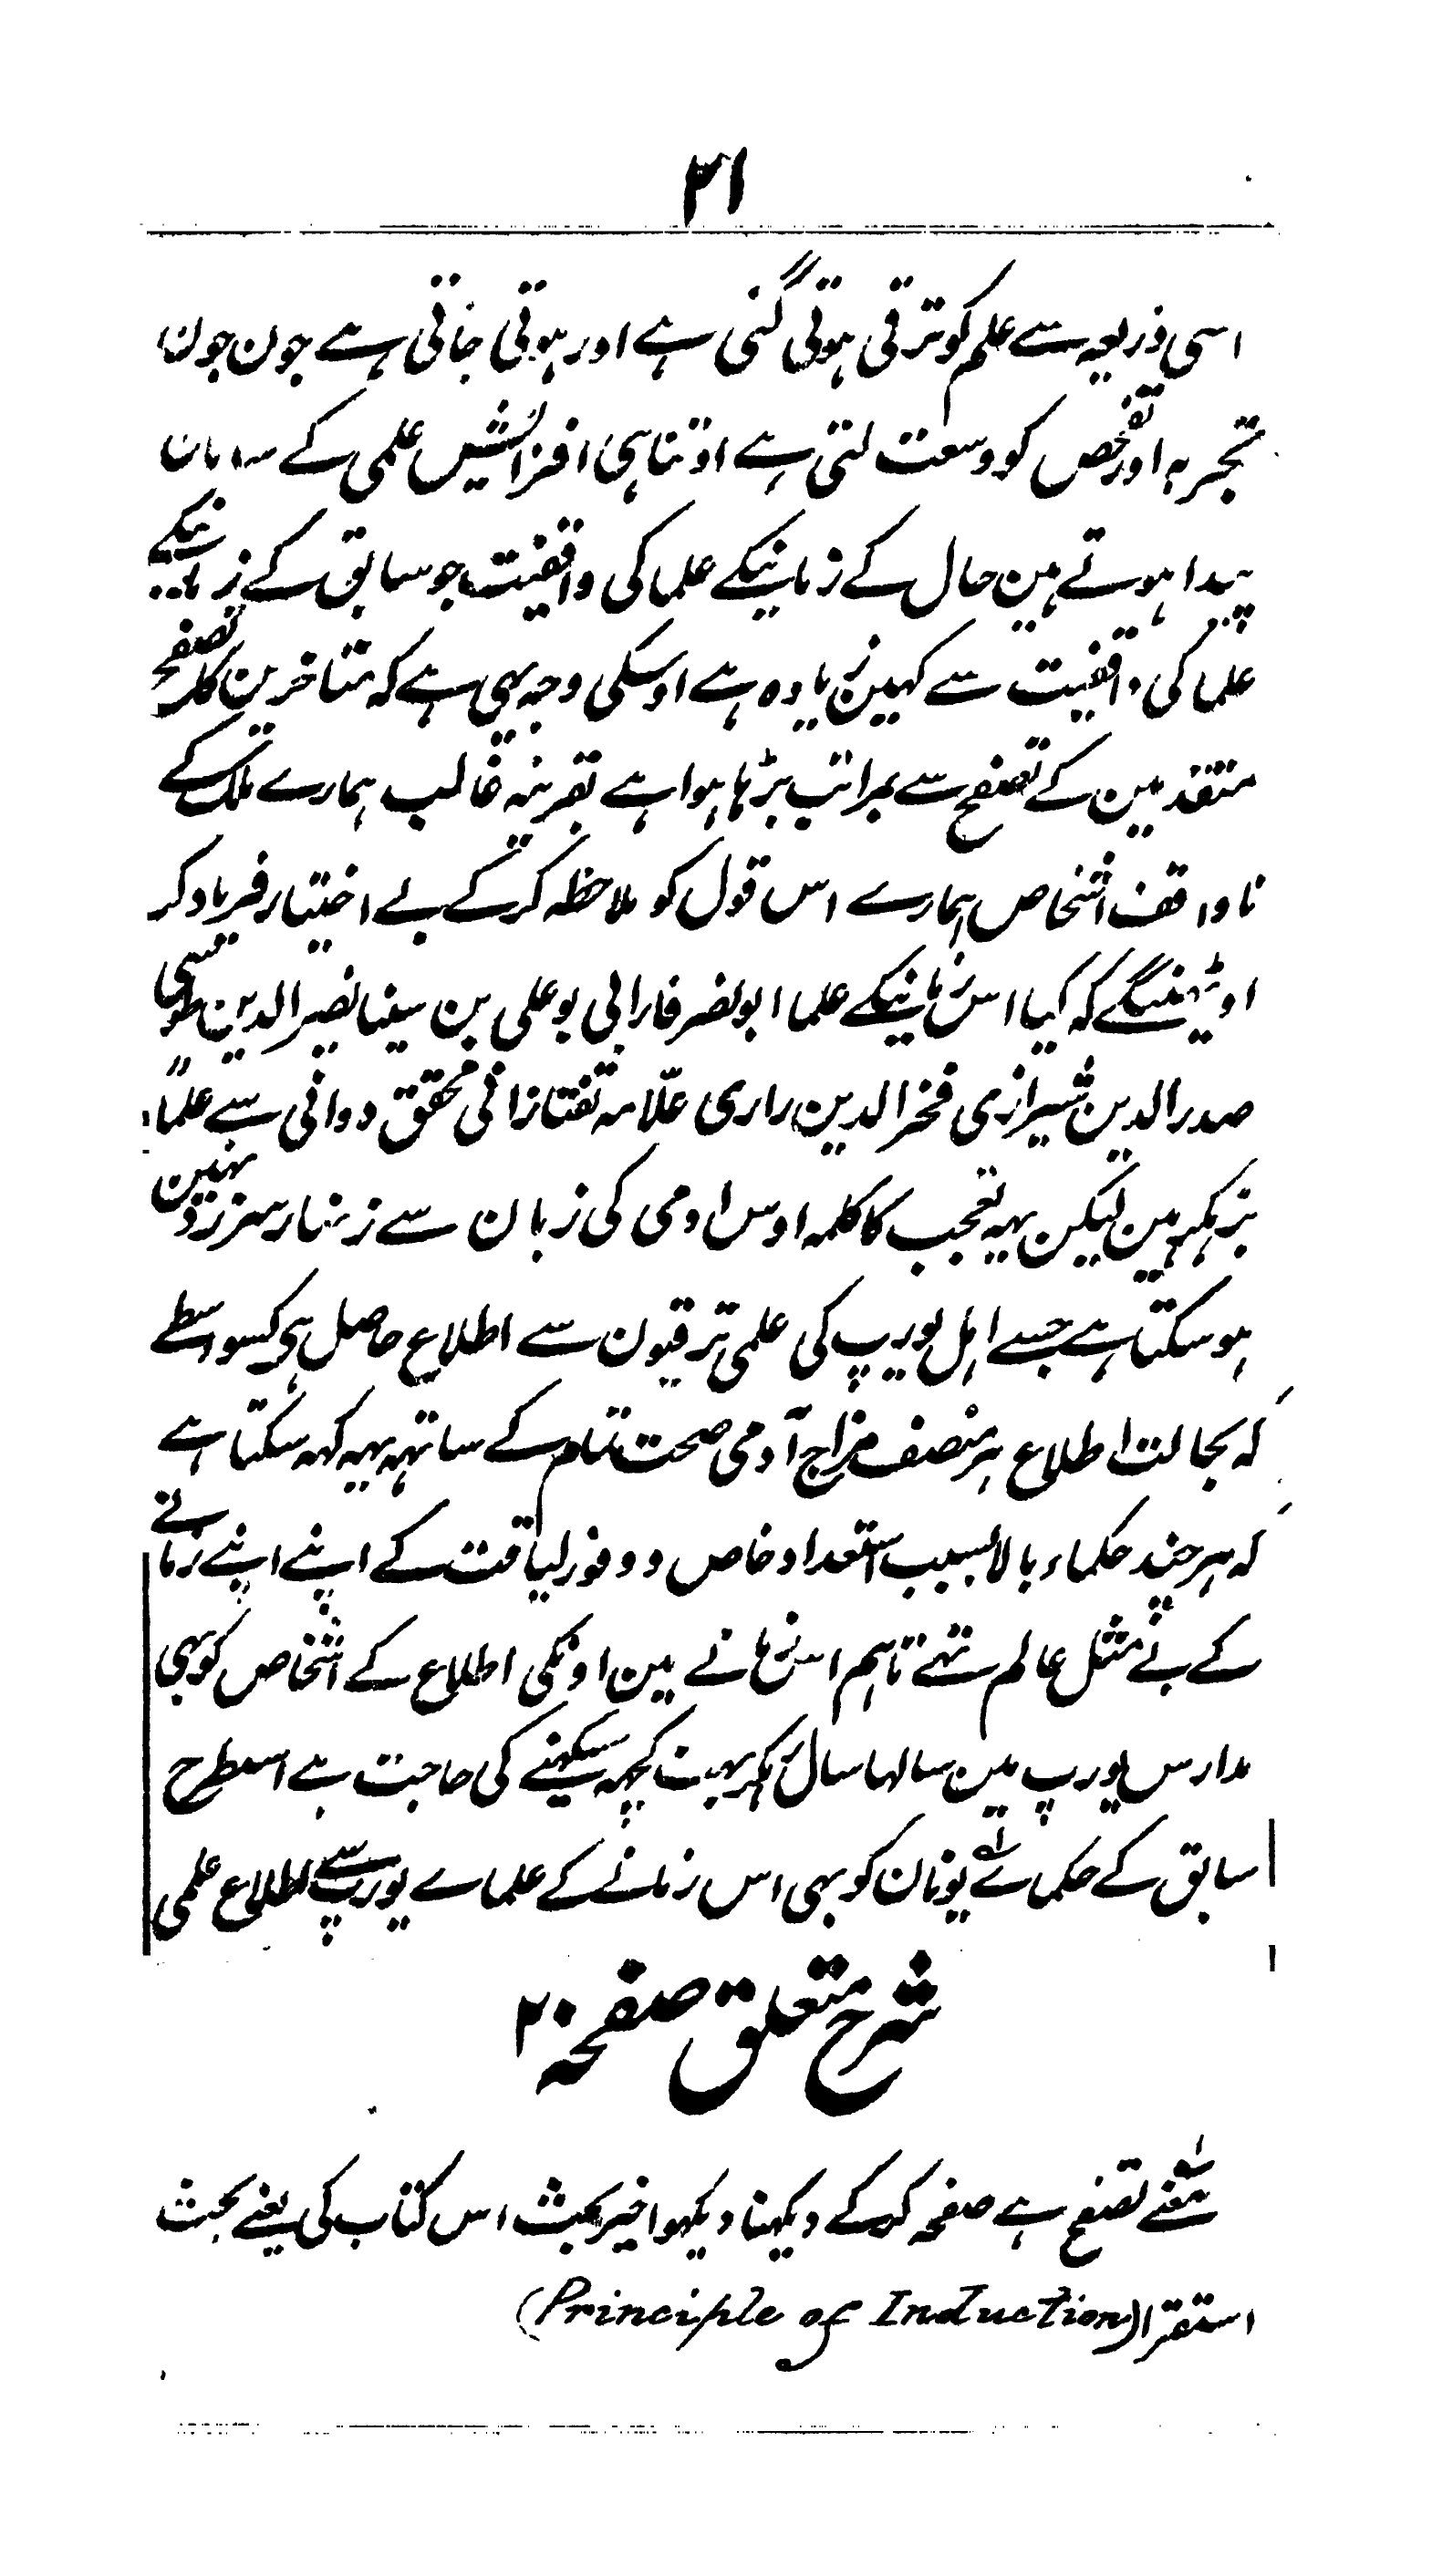 ۳۱
اسی ذریعہ سے علم کو ترقی ہوتی گئی ہے اور ہوتی جاتی ہے جون جون
تجربہ اور تفحص کو وسعت ملتی ہے اوتنا ہی افزایش علمی کے سامان
پیدا ہوتے ہین حال کے زمانیکے علما کی واقفیت جو سابق کے زمانیکے
علما کی واقفیت سے کہین زیادہ ہے اوسکی وجہ یہی ہے کہ متاخرین کا تصفح
متقدمین کے تصفح سے بمراتب بڑہا ہوا ہے بقرینہ غالب ہمارے ملک کے
ناواقف اشخاص ہمارے اس قول کو ملاحظہ کرکے بے اختیار فریاد کر
اوٹہینگے کہ کیا اس زمانیکے علما ابونصر فارابی بوعلی بن سینا نصیرالدین طوسی
صدرالدین شیرازی فخرالدین رازی علّامہ تفتازانی محقق دوانی سے علماً
بڑہکر ہین لیکن یہہ تعجب کا کلمہ اوس ادمی کی زبان سے زنہار سرزد نہین
ہو سکتا ہے جسے اہل یورپ کی علمی ترقیون سے اطلاع حاصل ہی کسواسطے
کہ بحالت اطلاع ہر منصف مزاج آدمی صحت تمام کے ساتہہ یہہ کہہ سکتا ہے
کہ ہر چند حکماء بالا بسبب استعداد خاص و وفور لیاقت کے اپنے اپنے زمانے
کے بے مثل عالم تہے تاہم اس زمانے مین اونکی اطلاع کے اشخاص کو بہی
مدارس یورپ مین سالہا سال رہکر بہت کچہہ سیکہنے کی حاجت ہے اسطرح
سابق کے حکماے یونان کو بہی اس زمانے کے علماے یورپ سے اطلاع علمی
شرح متعلق صفحہ ۲۰
معنے تصفح ہے صفحہ کرکے دیکہنا دیکہو اخیر بحث اس کتاب کی یعنے بحث
استقرا (Principle of Induction)